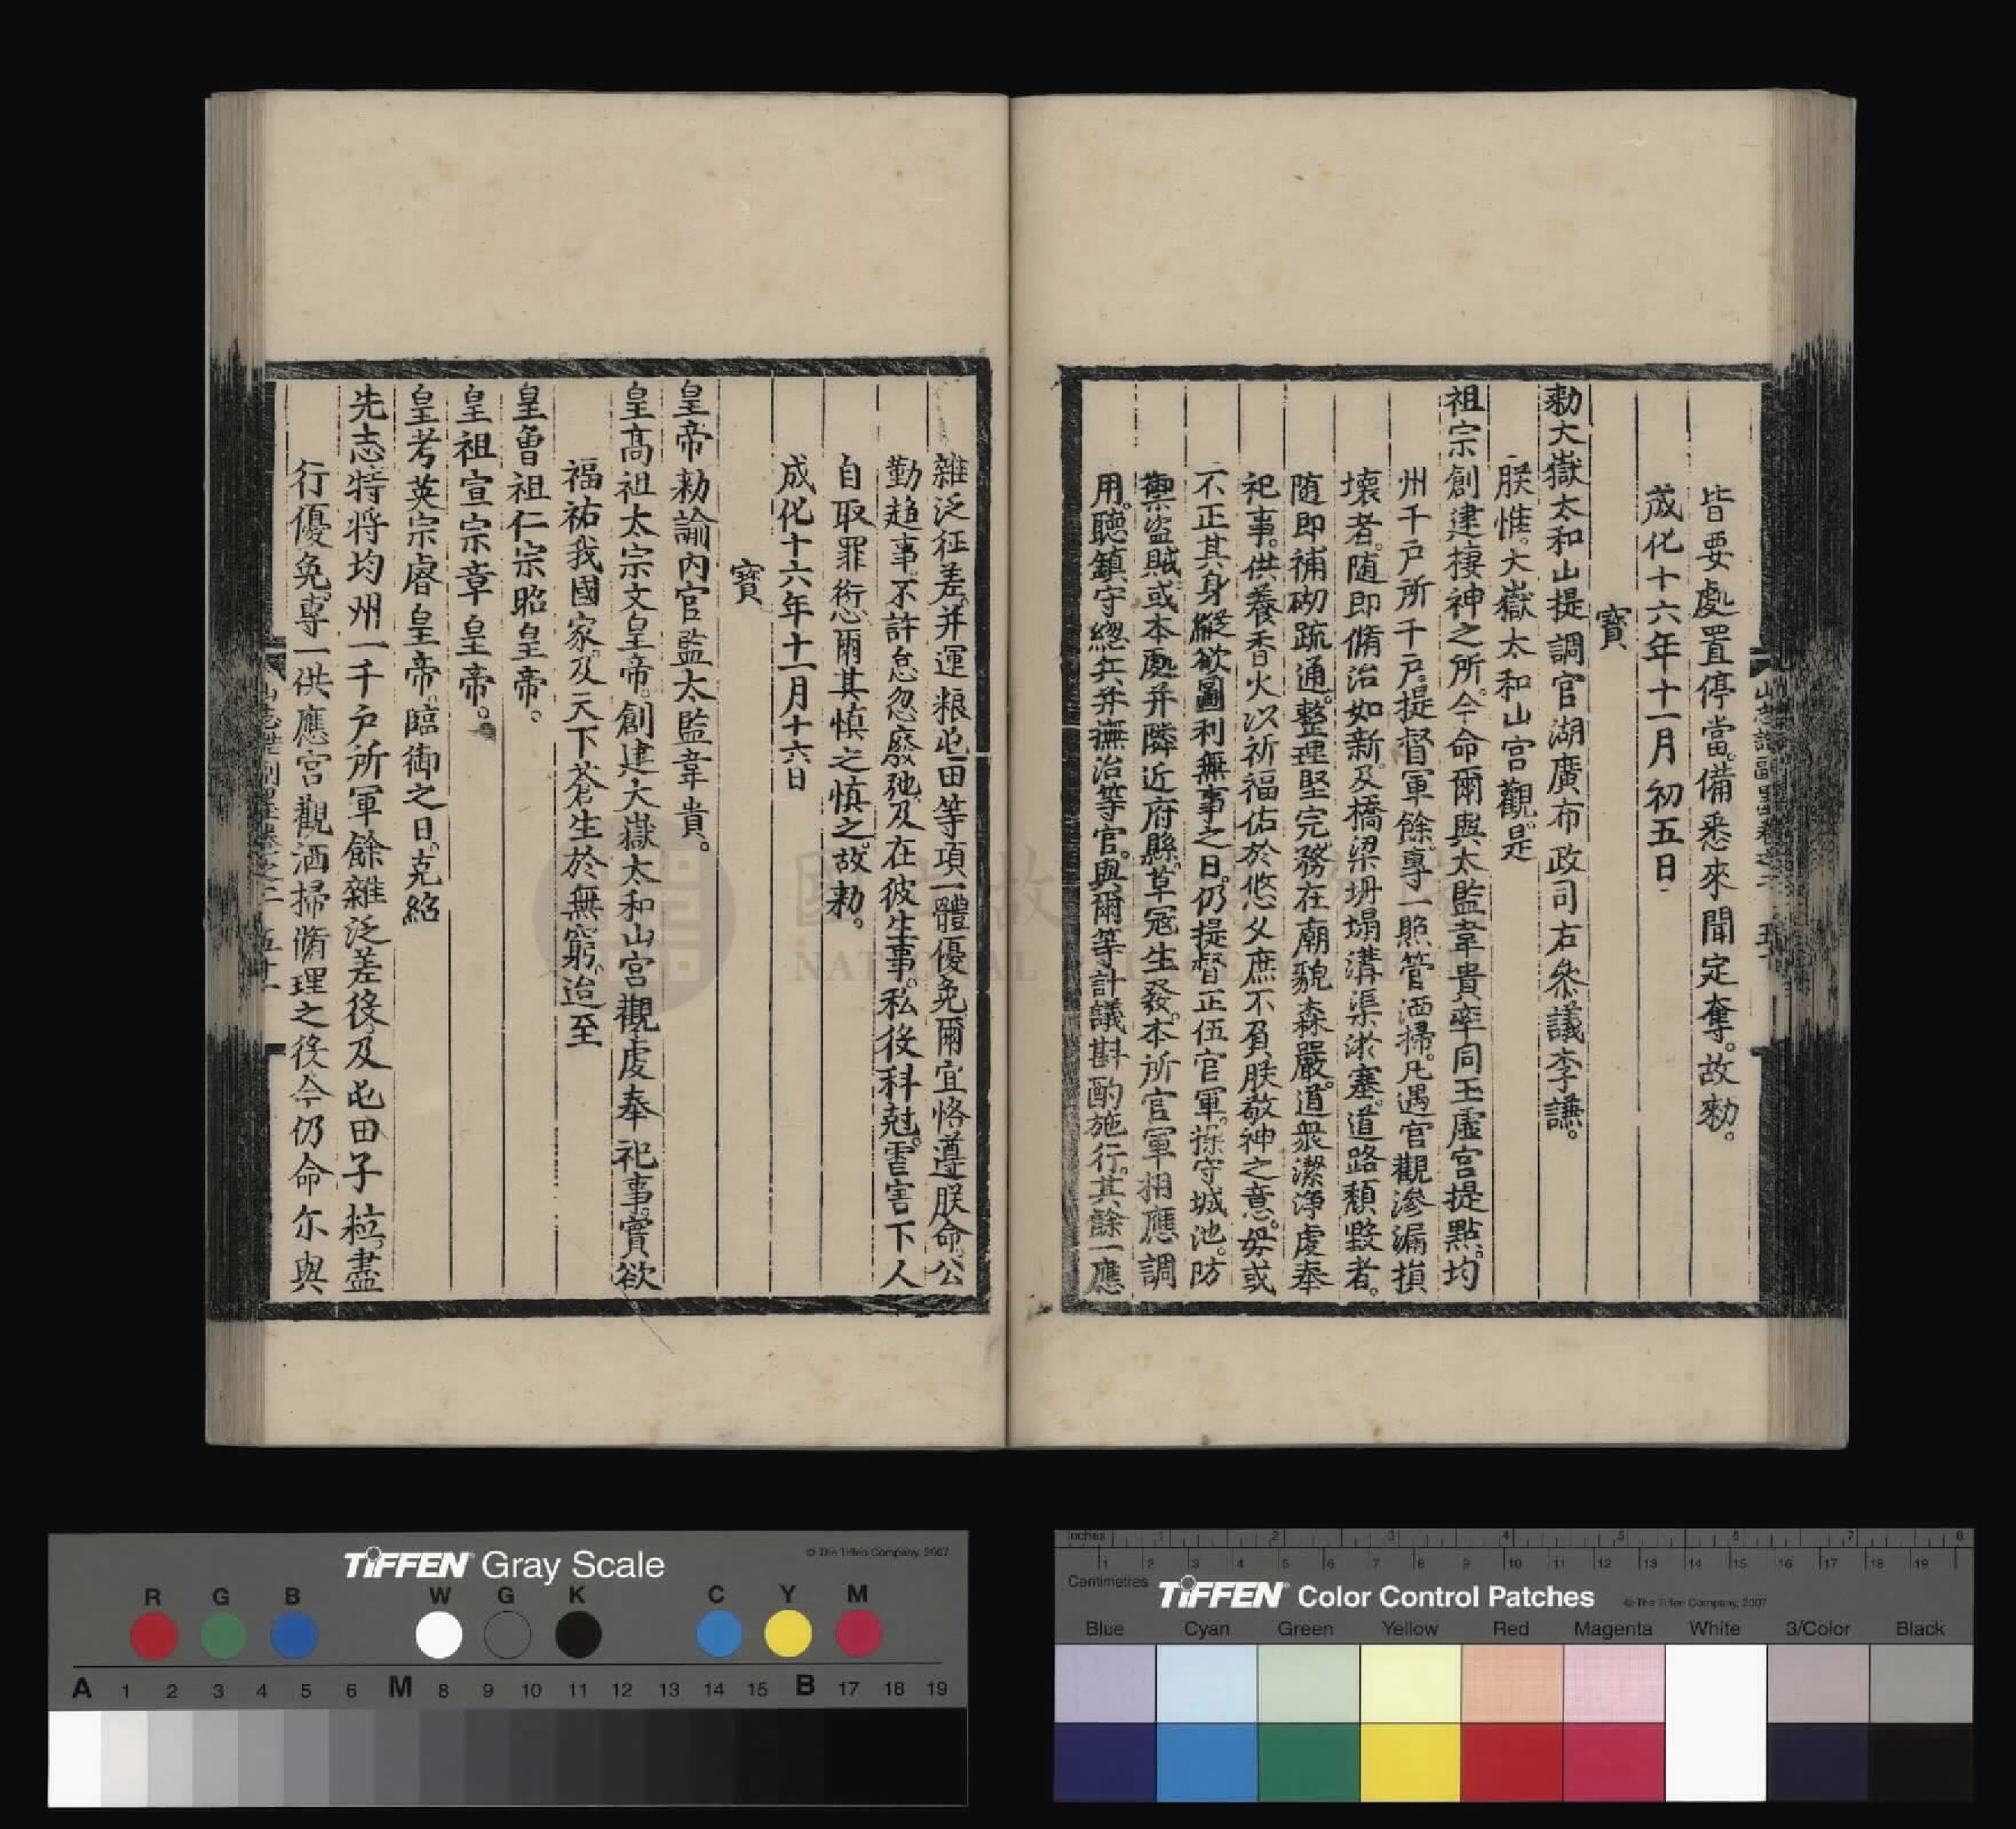 皆要處置停當。備悉來聞定奪。故勑。
成化十六年十一月初五日
寳
勑大嶽太和山提調官湖廣布政司右叅議李謙。
朕惟。大嶽太和山宮觀。是
祖宗創建棲神之所。今命爾與太監韋貴率同玉虛宮提點。均
州千戶所千戶。提督軍餘。專一照管洒掃。凡遇宮觀滲漏損
壞者。隨即脩治如新。及橋梁坍塌。溝渠淤塞。道路頽毀者。
隨即補砌疏通。整理堅完。務在廟貌森嚴。道衆潔淨。虔奉
祀事。供養香火。以祈福佑於悠久。庶不負朕敬神之意。毋或
不正其身。縱欲圖利。無事之日。仍提督正伍官軍。操守城池。防
禦盜賊。或本處并隣近府縣。草冦生發。本所官軍相應調
用。聽鎮守總兵并撫治等官。與爾等計議斟酌施行。其餘一應
雜泛征差。并運粮屯田等項。一體優免。爾宜恪遵朕命。公
勤趨事。不許怠忽廢弛。及在彼生事。私役科尅。害下人
自取罪衍。爾其慎之慎之。故勑。
成化十六年十一月十六日
寳
皇帝勑諭內官監太監韋貴。
皇髙祖太宗文皇帝。創建大嶽太和山宮觀。虔奉祀事。實欲
福祐我國家。及天下蒼生於無窮。迨至
皇曾祖仁宗昭皇帝。
皇祖宣宗章皇帝。
皇考英宗睿皇帝。臨御之日。克紹
先志。特將均州一千戶所軍餘雜泛差役。及屯田子粒。盡
行優免。專一供應宮觀洒掃脩理之役。今仍命尔與
National Palace Museum
TIFFEN Gray Scale
© The Tiffen Company, 2007
R G B W G K C Y M
A 1 2 3 4 5 6 M 8 9 10 11 12 13 14 15 B 17 18 19
Inches 1 2 3 4 5 6 7 8
1 2 3 4 5 6 7 8 9 10 11 12 13 14 15 16 17 18 19
Centimetres
TIFFEN Color Control Patches
© The Tiffen Company, 2007
Blue Cyan Green Yellow Red Magenta White 3/Color Black